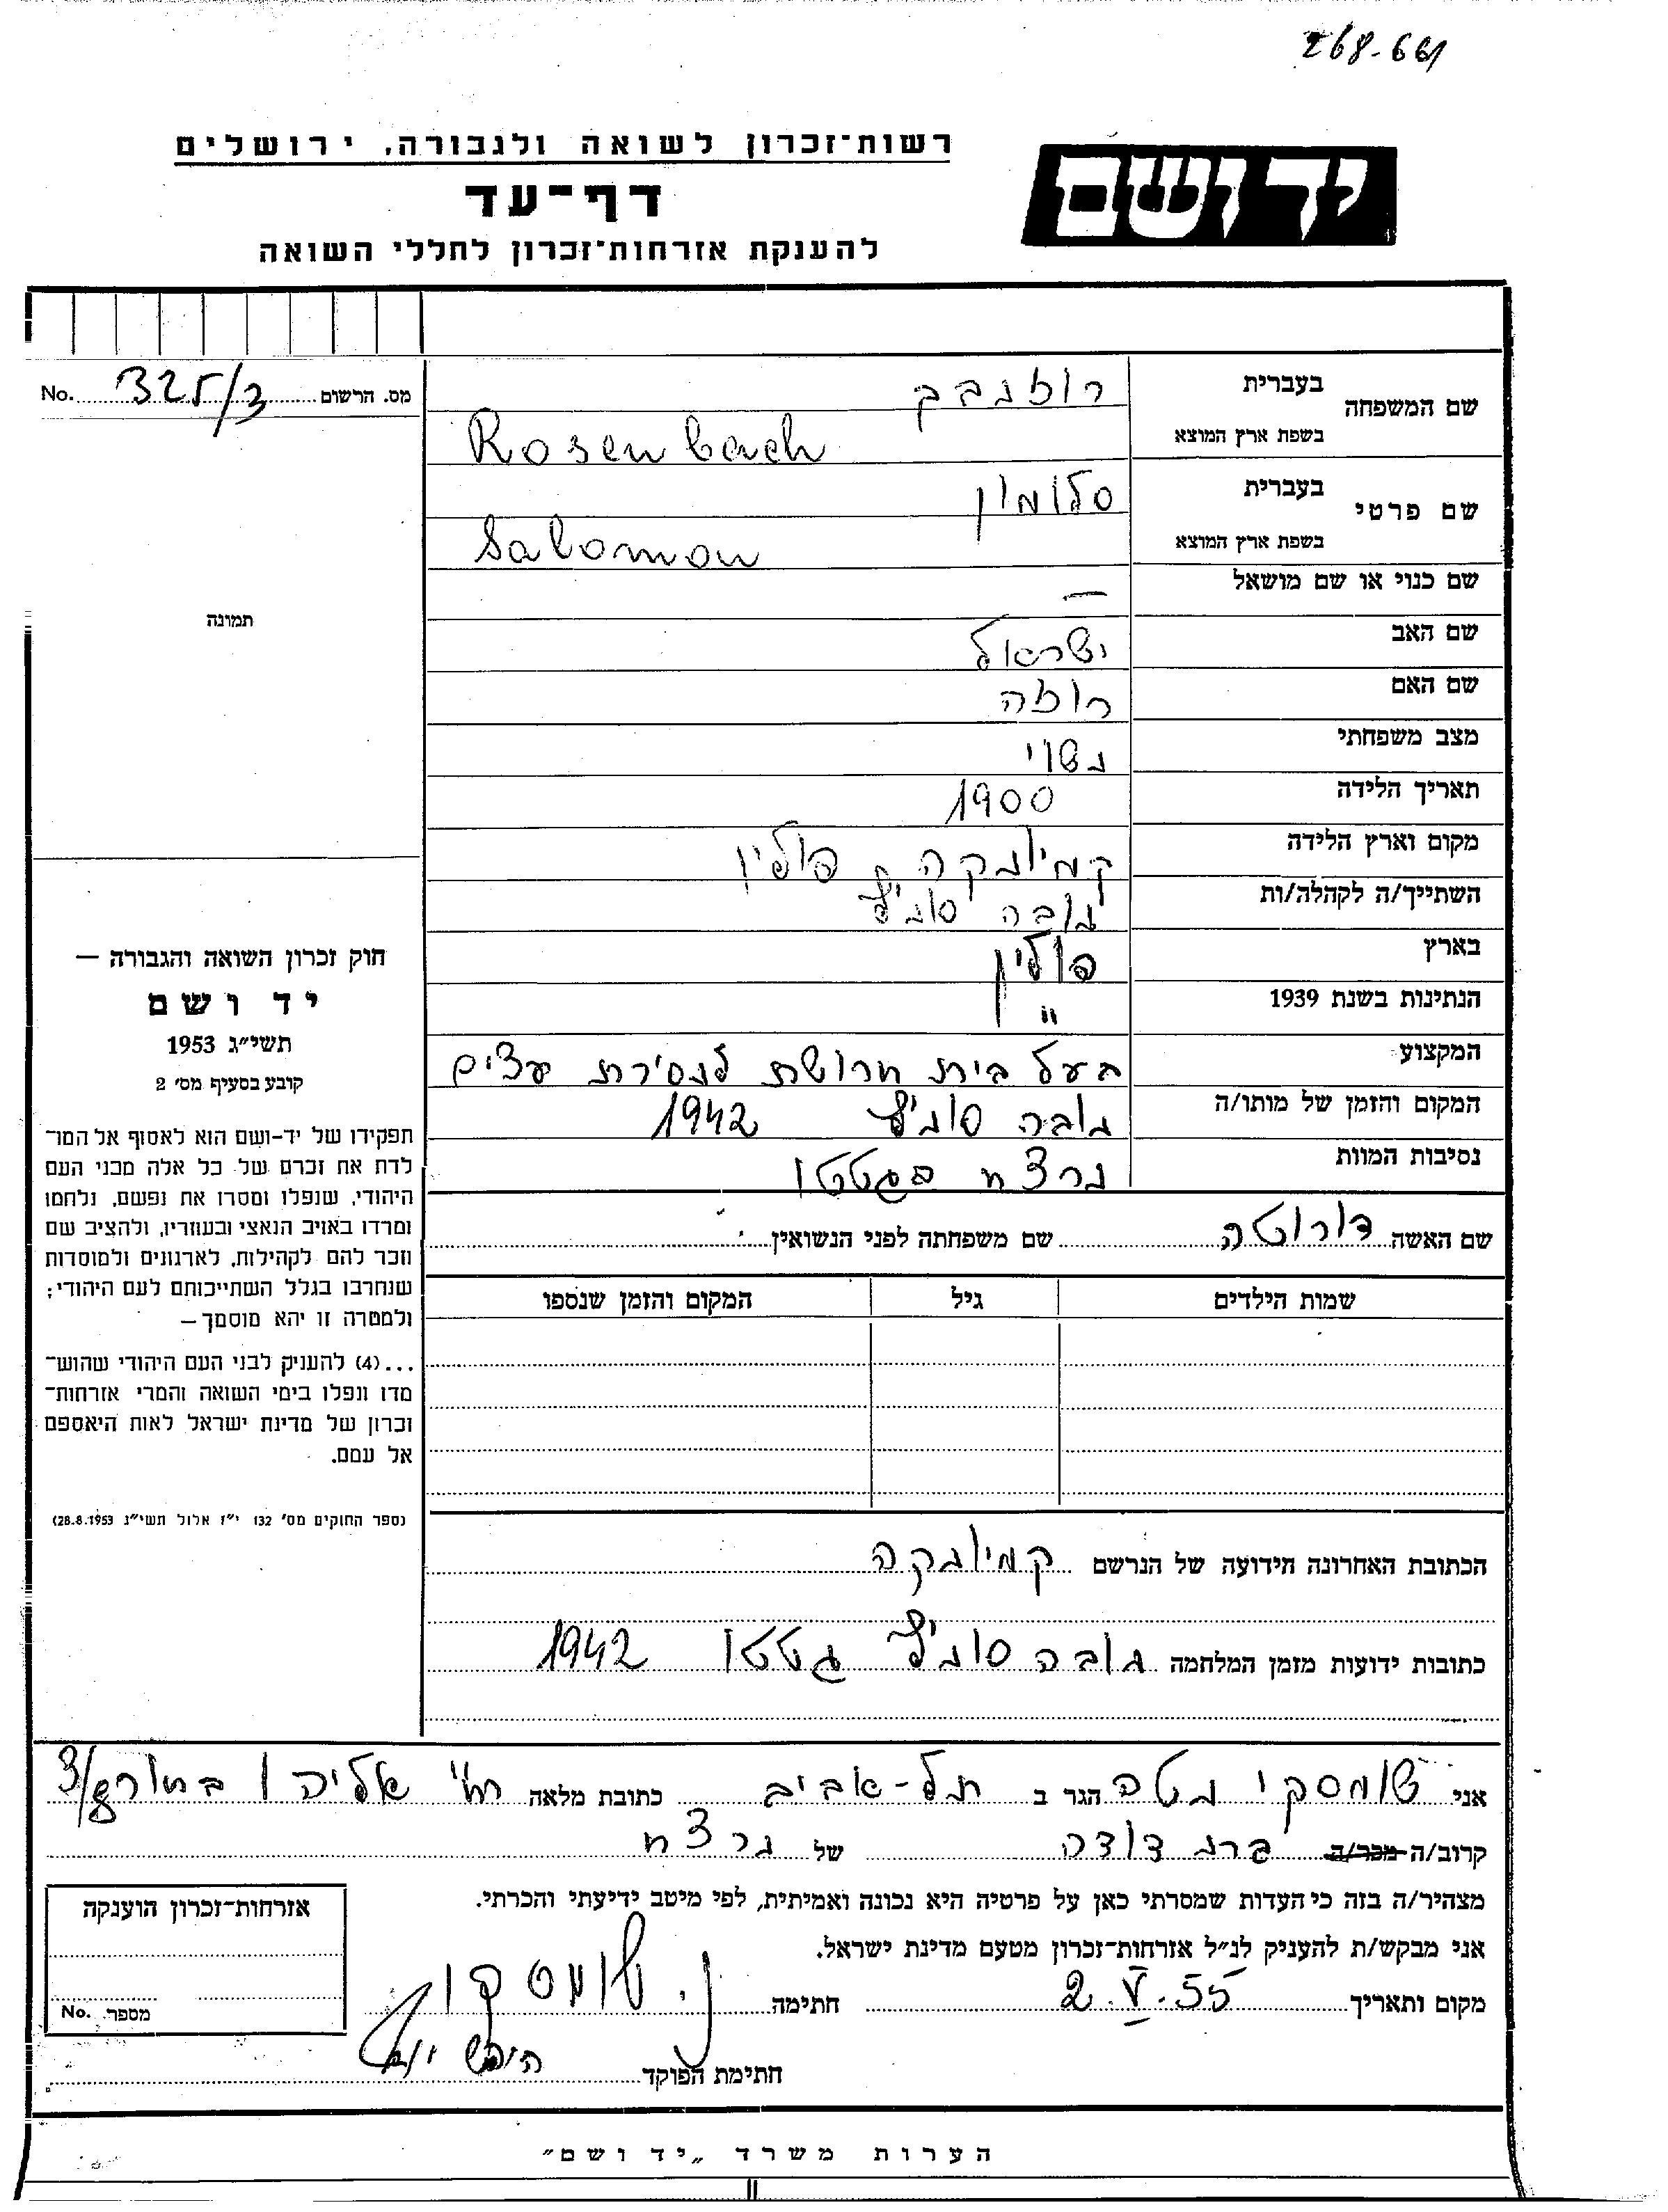 268-661
רשות-זכרון לשואה ולגבורה, ירושלים
יד ושם
דף-עד
להענקת אזרחות-זכרון לחללי השואה
מס. הרשום 325/3 No.
שם המשפחה בעברית רוזנבך
בשפת ארץ המוצא Rosenbach
שם פרטי בעברית סלומון
בשפת ארץ המוצא Salomon
שם כנוי או שם מושאל —
שם האב ישראל
שם האם רוזה
מצב משפחתי נשוי
תאריך הלידה 1900
מקום וארץ הלידה קמיונקה, פולין
השתייך/ה לקהלה/ות נובה סונץ'
בארץ פולין
הנתינות בשנת 1939 "
המקצוע בעל בית חרושת לנסירת עצים
המקום והזמן של מותו/ה נובה סונץ' 1942
נסיבות המוות נרצח בגטטו
שם האשה דורוטה שם משפחתה לפני הנשואין
שמות הילדים גיל המקום והזמן שנספו
תמונה
חוק זכרון השואה והגבורה —
יד ושם
תשי"ג 1953
קובע בסעיף מס' 2
תפקידו של יד-ושם הוא לאסוף אל המו־
לדת את זכרם של כל אלה מבני העם
היהודי, שנפלו ומסרו את נפשם, נלחמו
ומרדו באויב הנאצי ובעוזריו, ולהציב שם
וזכר להם לקהילות, לארגונים ולמוסדות
שנחרבו בגלל השתייכותם לעם היהודי;
ולמטרה זו יהא מוסמך —
...(4) להעניק לבני העם היהודי שהוש־
מדו ונפלו בימי השואה והמרי אזרחות־
זכרון של מדינת ישראל לאות היאספם
אל עמם.
(ספר החוקים מס' 132 י"ז אלול תשי"ג 28.8.1953)
הכתובת האחרונה הידועה של הנרשם קמיונקה
כתובות ידועות מזמן המלחמה נובה סונץ' גטטו 1942
אני שומסקי נטה הגר ב תל-אביב כתובת מלאה רח' אליהו בחור 3/
קרוב/ה מכר/ה בת דודה של נרצח
מצהיר/ה בזה כי העדות שמסרתי כאן על פרטיה היא נכונה ואמיתית, לפי מיטב ידיעתי והכרתי.
אני מבקש/ת להעניק לנ"ל אזרחות-זכרון מטעם מדינת ישראל.
מקום ותאריך 2.V.55 חתימה נ. שומסקי
חתימת הפוקד
אזרחות-זכרון הוענקה
מספר No.
הערות משרד „יד ושם"